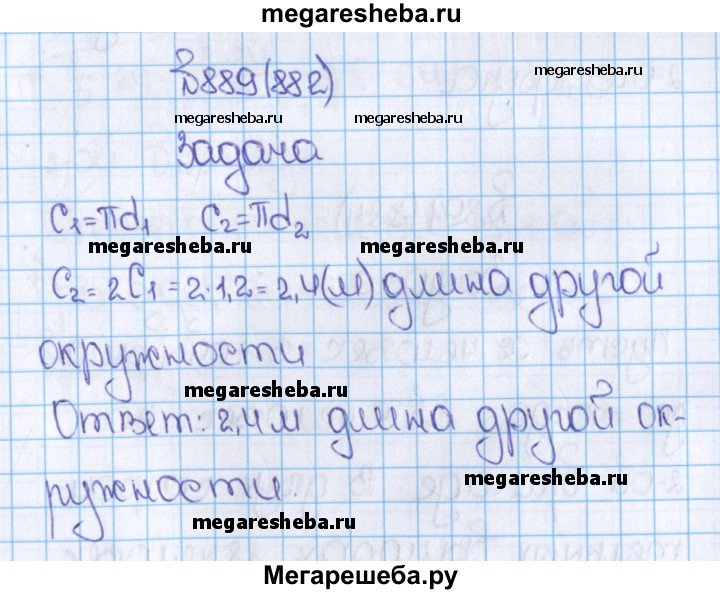 megaresheba.ru
№889(882)
megaresheba.ru
megaresheba.ru megaresheba.ru
Задача
C₁=πd₁ C₂=πd₂
megaresheba.ru megaresheba.ru
C₂=2C₁=2·1,2=2,4(м) длина другой
окружности
megaresheba.ru
Ответ: 2,4м длина другой ок-
ружности.
megaresheba.ru
megaresheba.ru
Мегарешеба.ру